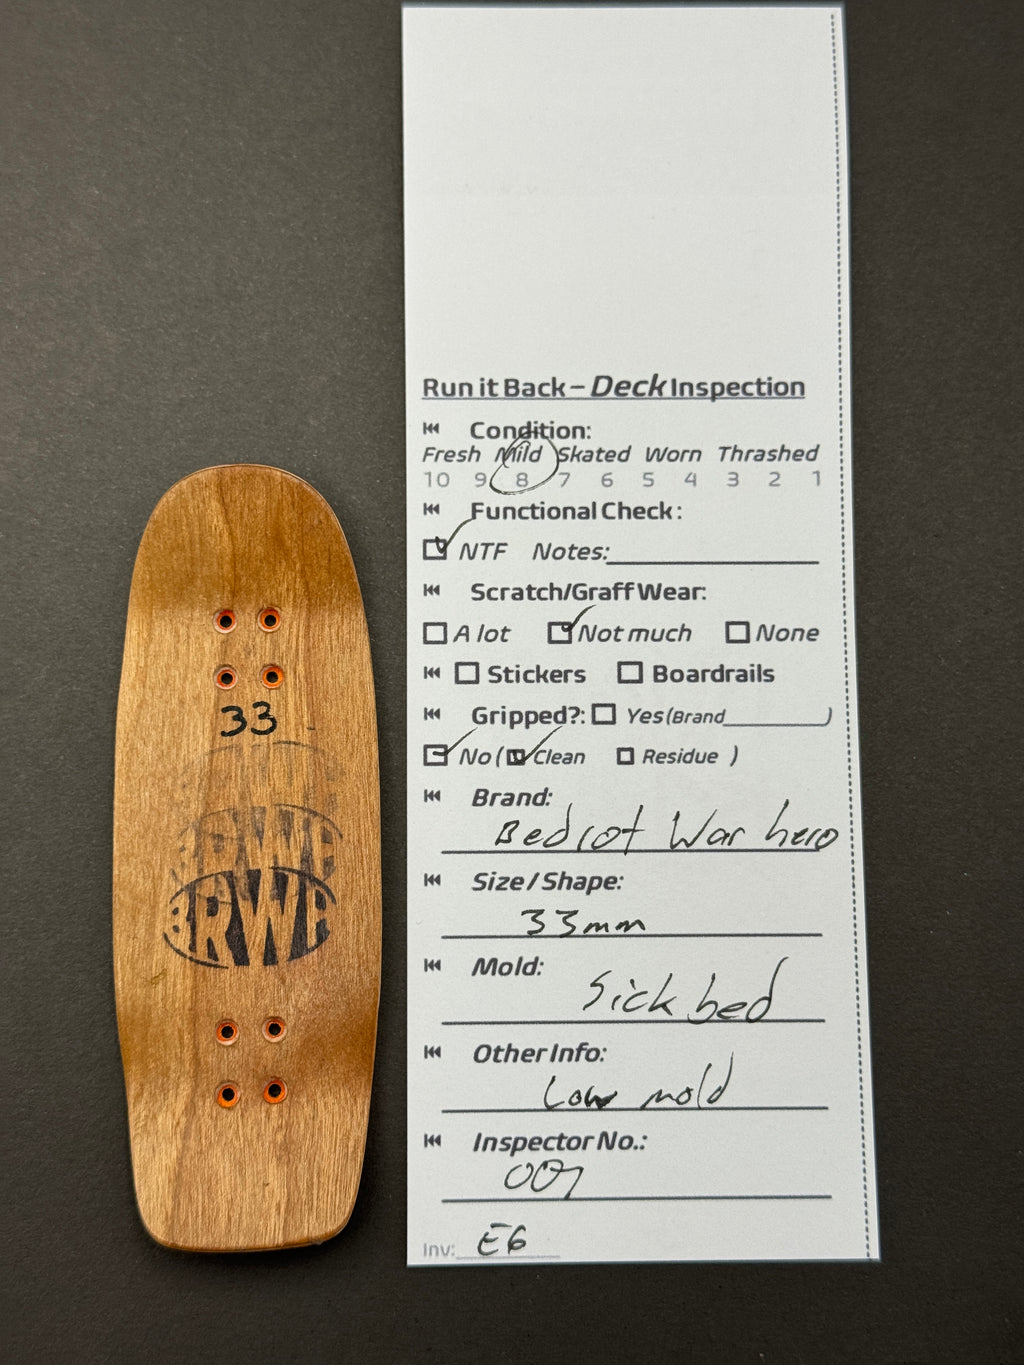 Run it Back – Deck Inspection
Condition:
Fresh Mild Skated Worn Thrashed
10 9 8 7 6 5 4 3 2 1
Functional Check:
NTF Notes:
Scratch/Graff Wear:
A lot Not much None
Stickers Boardrails
Gripped?: Yes (Brand )
No ( Clean Residue )
Brand:
Bedrot War hero
Size / Shape:
33mm
Mold:
Sick bed
Other Info:
Low mold
Inspector No.:
007
Inv: E6
33
BRWH
BRWH